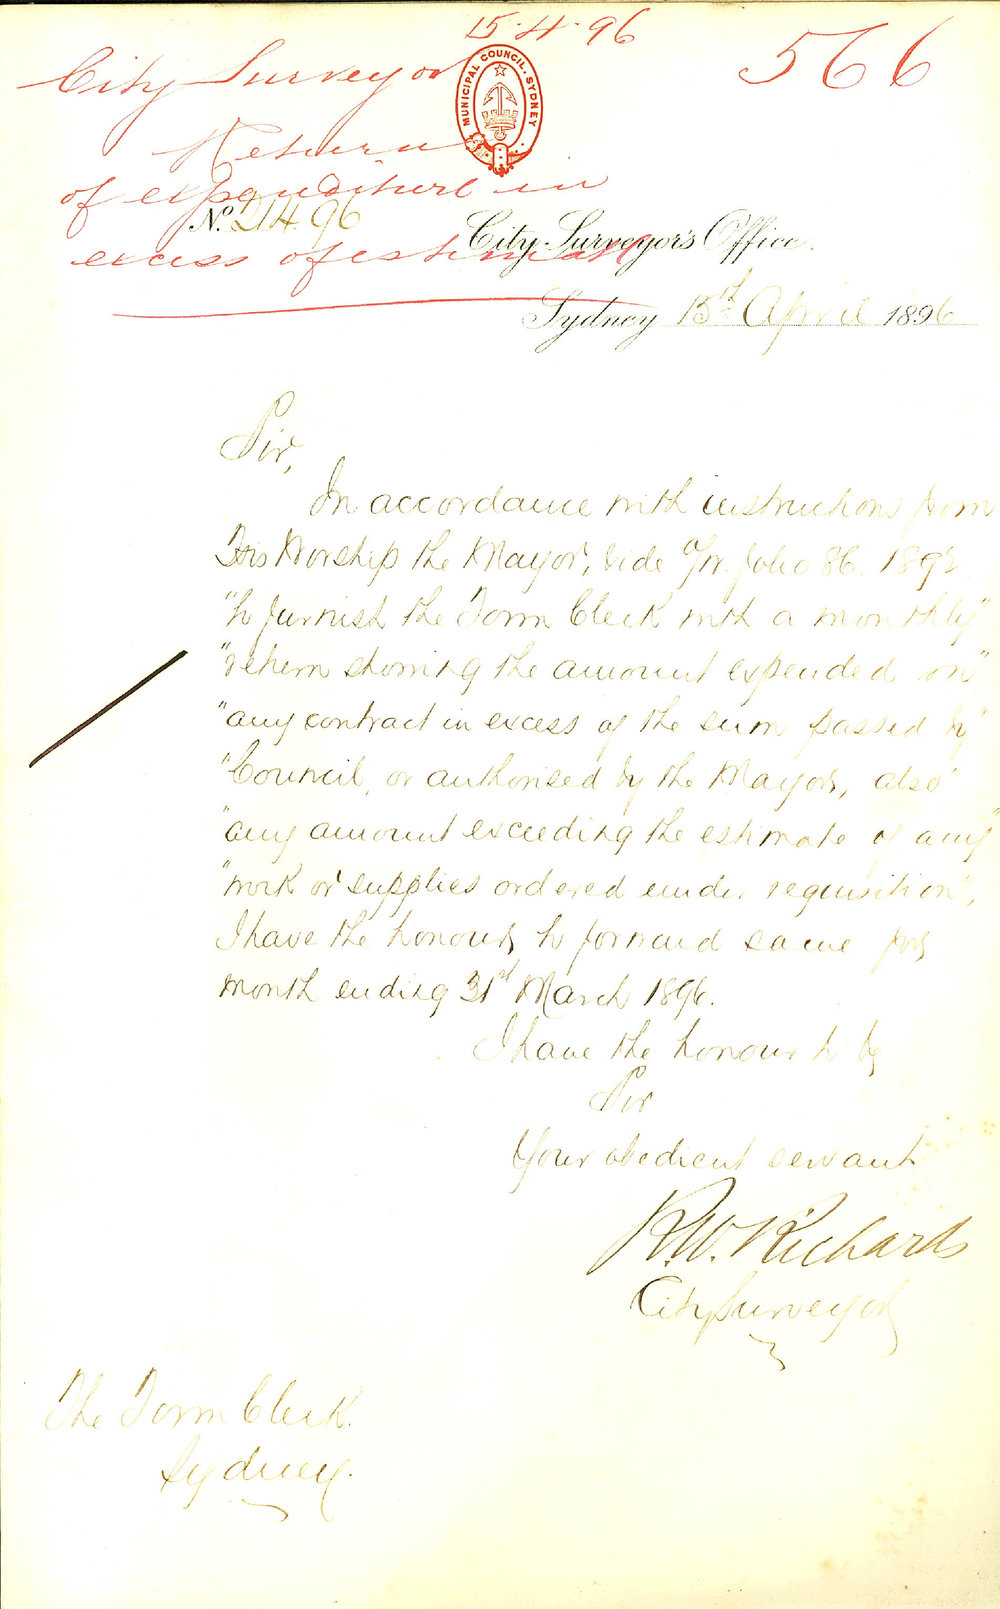 15.4.96
566
City Surveyor
MUNICIPAL COUNCIL. SYDNEY
Return
of expenditure in
No. 214.96
City Surveyor's Office.
excess of estimate
Sydney 15th April 1896
Sir,
In accordance with instructions from
His Worship the Mayor, vide folio 86. 1892
"to furnish the Town Clerk with a monthly"
"return showing the amount expended on"
"any contract in excess of the sum passed by"
"Council, or authorised by the Mayor, also"
"any amount exceeding the estimate of any"
"work or supplies ordered under requisition",
I have the honour to forward same for
month ending 31st March 1896.
I have the honour to be
Sir
Your obedient servant
R.W. Richards
City Surveyor
The Town Clerk.
Sydney.